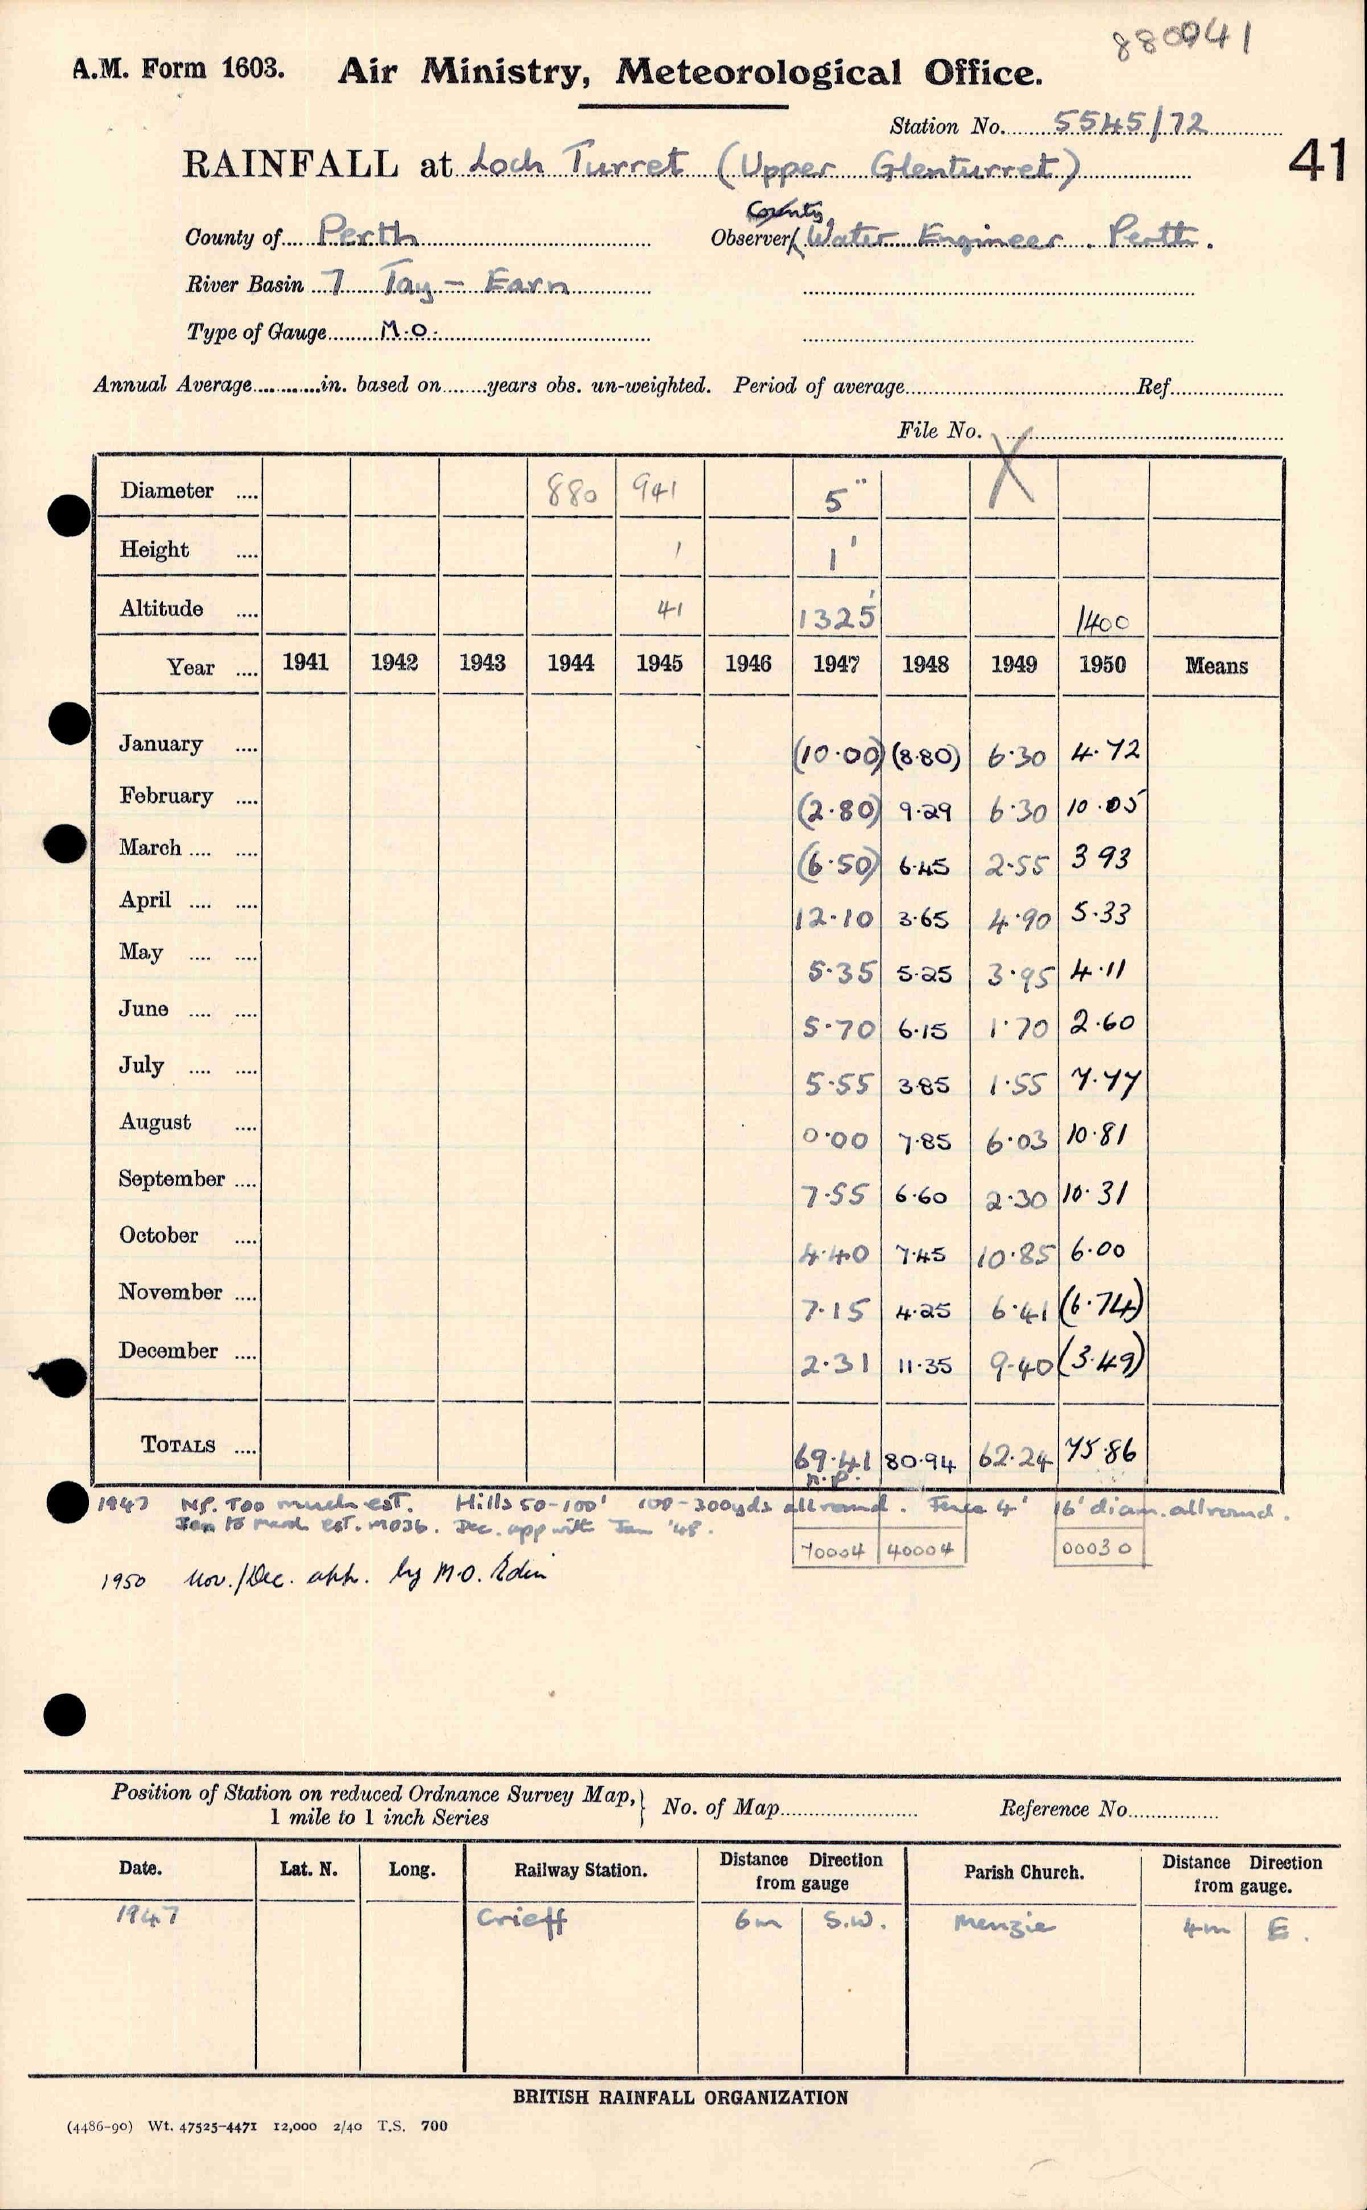 880941
A.M. Form 1603. Air Ministry, Meteorological Office.
Station No. 5545/72
41
RAINFALL at Loch Turret (Upper Glenturret)
County
County of Perth Observer Water Engineer. Perth.
River Basin 7 Tay - Earn
Type of Gauge M.O.
Annual Average in. based on years obs. un-weighted. Period of average Ref.
File No. X
Diameter 880 941 5"
Height 1 1'
Altitude 41 1325' 1400
Year 1941 1942 1943 1944 1945 1946 1947 1948 1949 1950 Means
January (10.00) (8.80) 6.30 4.72
February (2.80) 9.29 6.30 10.05
March (6.50) 6.45 2.55 3 93
April 12.10 3.65 4.90 5.33
May 5.35 5.25 3.95 4.11
June 5.70 6.15 1.70 2.60
July 5.55 3.85 1.55 7.77
August 0.00 7.85 6.03 10.81
September 7.55 6.60 2.30 10.31
October 4.40 7.45 10.85 6.00
November 7.15 4.25 6.41 (6.74)
December 2.31 11.35 9.40 (3.49)
TOTALS 69.41 80.94 62.24 75.86
n.p.
1947 NP. Too much est. Hills 50-100' 100-300yds all round. Fence 4' 16' diam. all round.
Jan to March est. MO36. Dec. app with Jan '48.
70004 40004 00030
1950 Nov./Dec. app. by M.O. Edin
Position of Station on reduced Ordnance Survey Map, 1 mile to 1 inch Series } No. of Map Reference No.
Date. Lat. N. Long. Railway Station. Distance Direction from gauge Parish Church. Distance Direction from gauge.
1947 Crieff 6m S.W. Menzie 4m E.
BRITISH RAINFALL ORGANIZATION
(4486-90) Wt. 47525-4471 12,000 2/40 T.S. 700